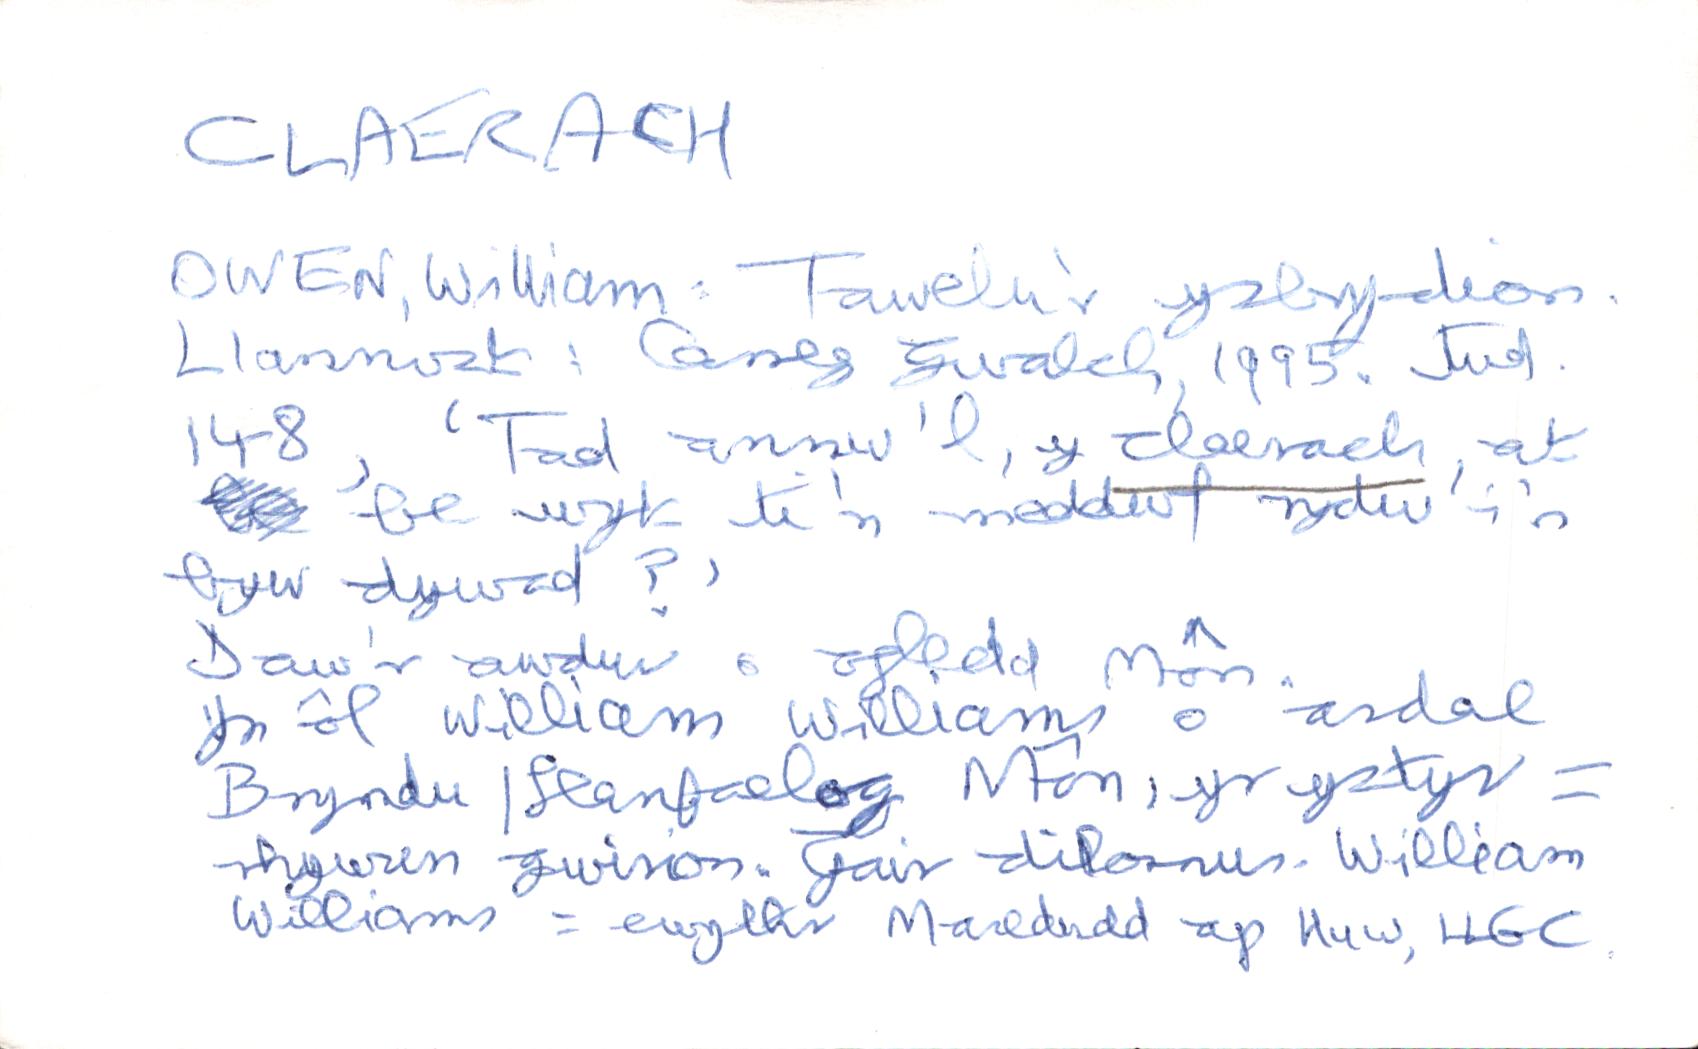 CLAERACH
OWEN, William: Tawelu'r ysbrydion.
Llanrwst: Carreg Gwalch, 1995. Tud.
148, 'Tad annw'l, y claerach, at
be wyt ti'n meddwl rydw' i'n
byw dywad?'
Daw'r awdur o ogledd Môn.
Yn ôl William Williams o ardal
Bryndu / Llanfaelog Môn, yr ystyr =
rhywun gwirion. Gair dilornus. William
Williams = ewythr Maredudd ap Huw, LLGC.